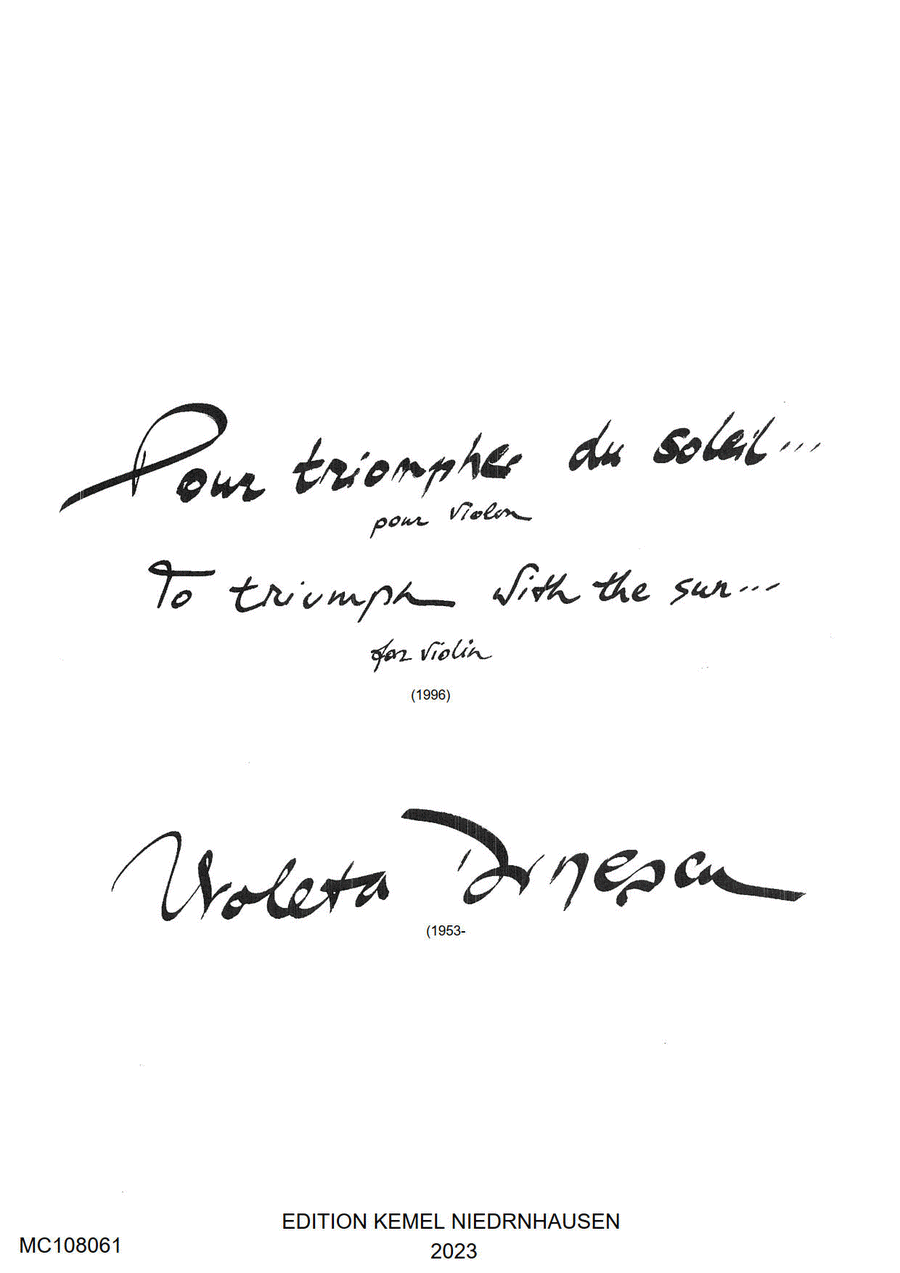 Pour triompher du soleil...
pour violon
To triumph with the sun...
for violin
(1996)
Violeta Dinescu
(1953-
EDITION KEMEL NIEDRNHAUSEN
2023
MC108061